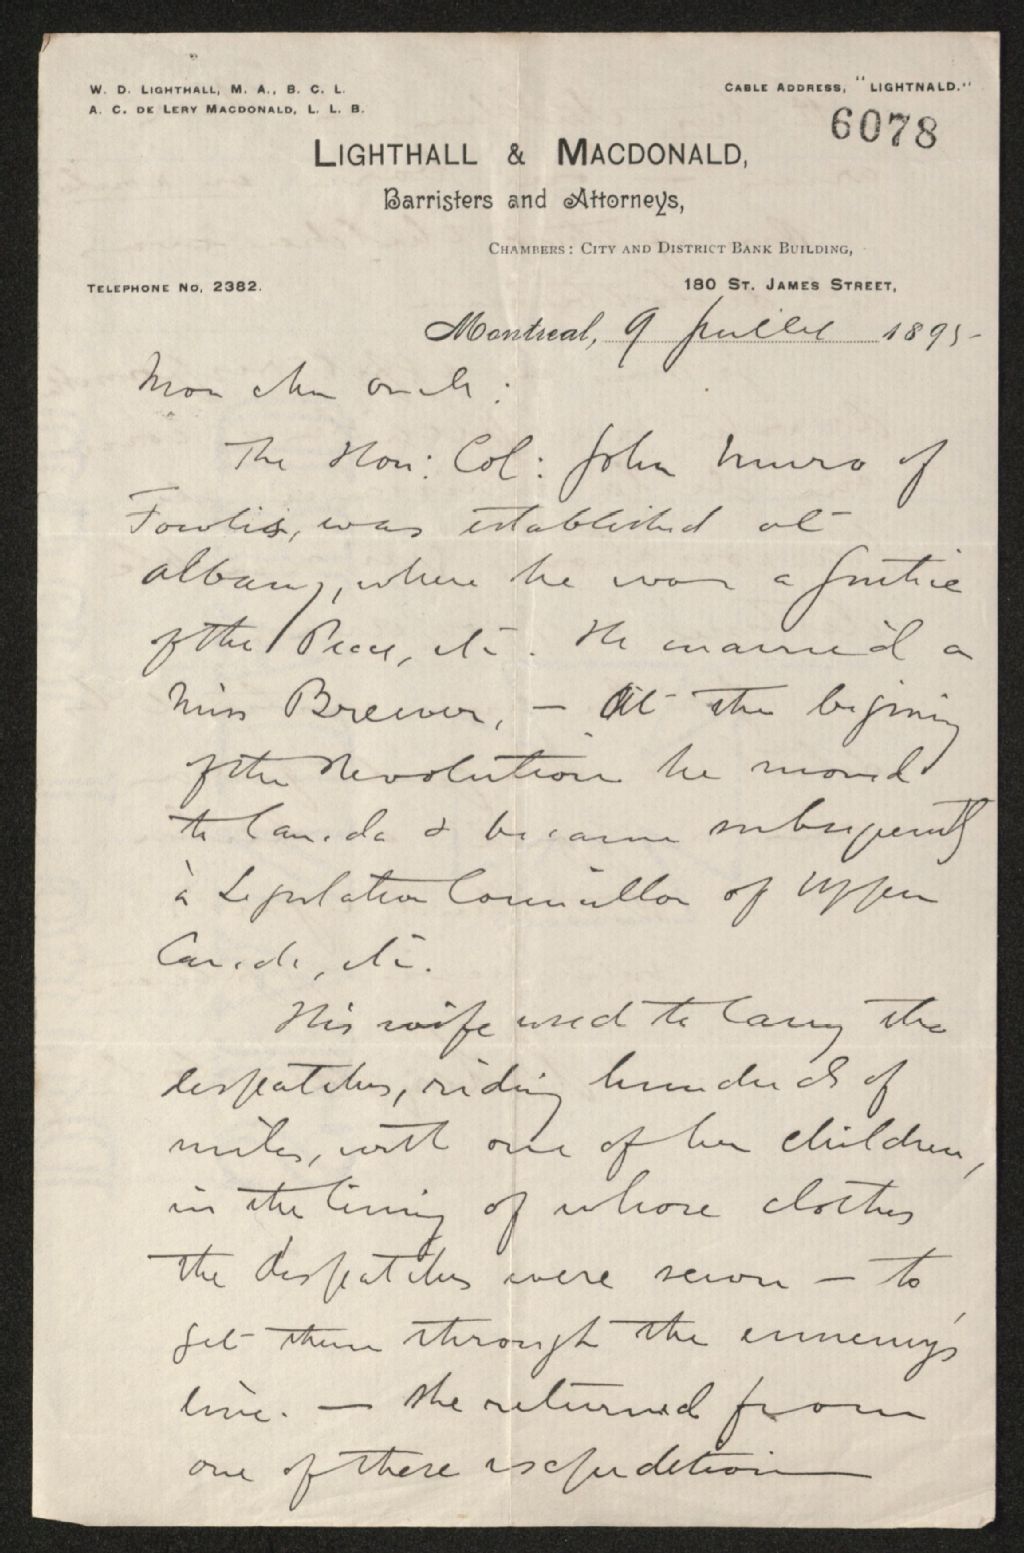 W. D. Lighthall, M. A., B. C. L.
A. C. de Lery Macdonald, L. L. B.
Cable Address, "Lightnald."
6078
Lighthall & Macdonald,
Barristers and Attorneys,
Chambers: City and District Bank Building,
Telephone No, 2382.
180 St. James Street,
Montreal, 9 Juillet 1895-
Mon cher oncle:
The Hon: Col: John Munro of
Fowlis, was established at
Albany, where he was a Justice
of the Peace, etc. He married a
Miss Brewer, — At the begining
of the Revolution he moved
to Canada & became subsequently
a Legislative Councillor of Upper
Canada, etc.
His wife used to carry the
despatches, riding hundreds of
miles, with one of her children,
in the lining of whose clothes
the despatches were sewn — to
get them through the ennemy's
line. — She returned from
one of these expedition